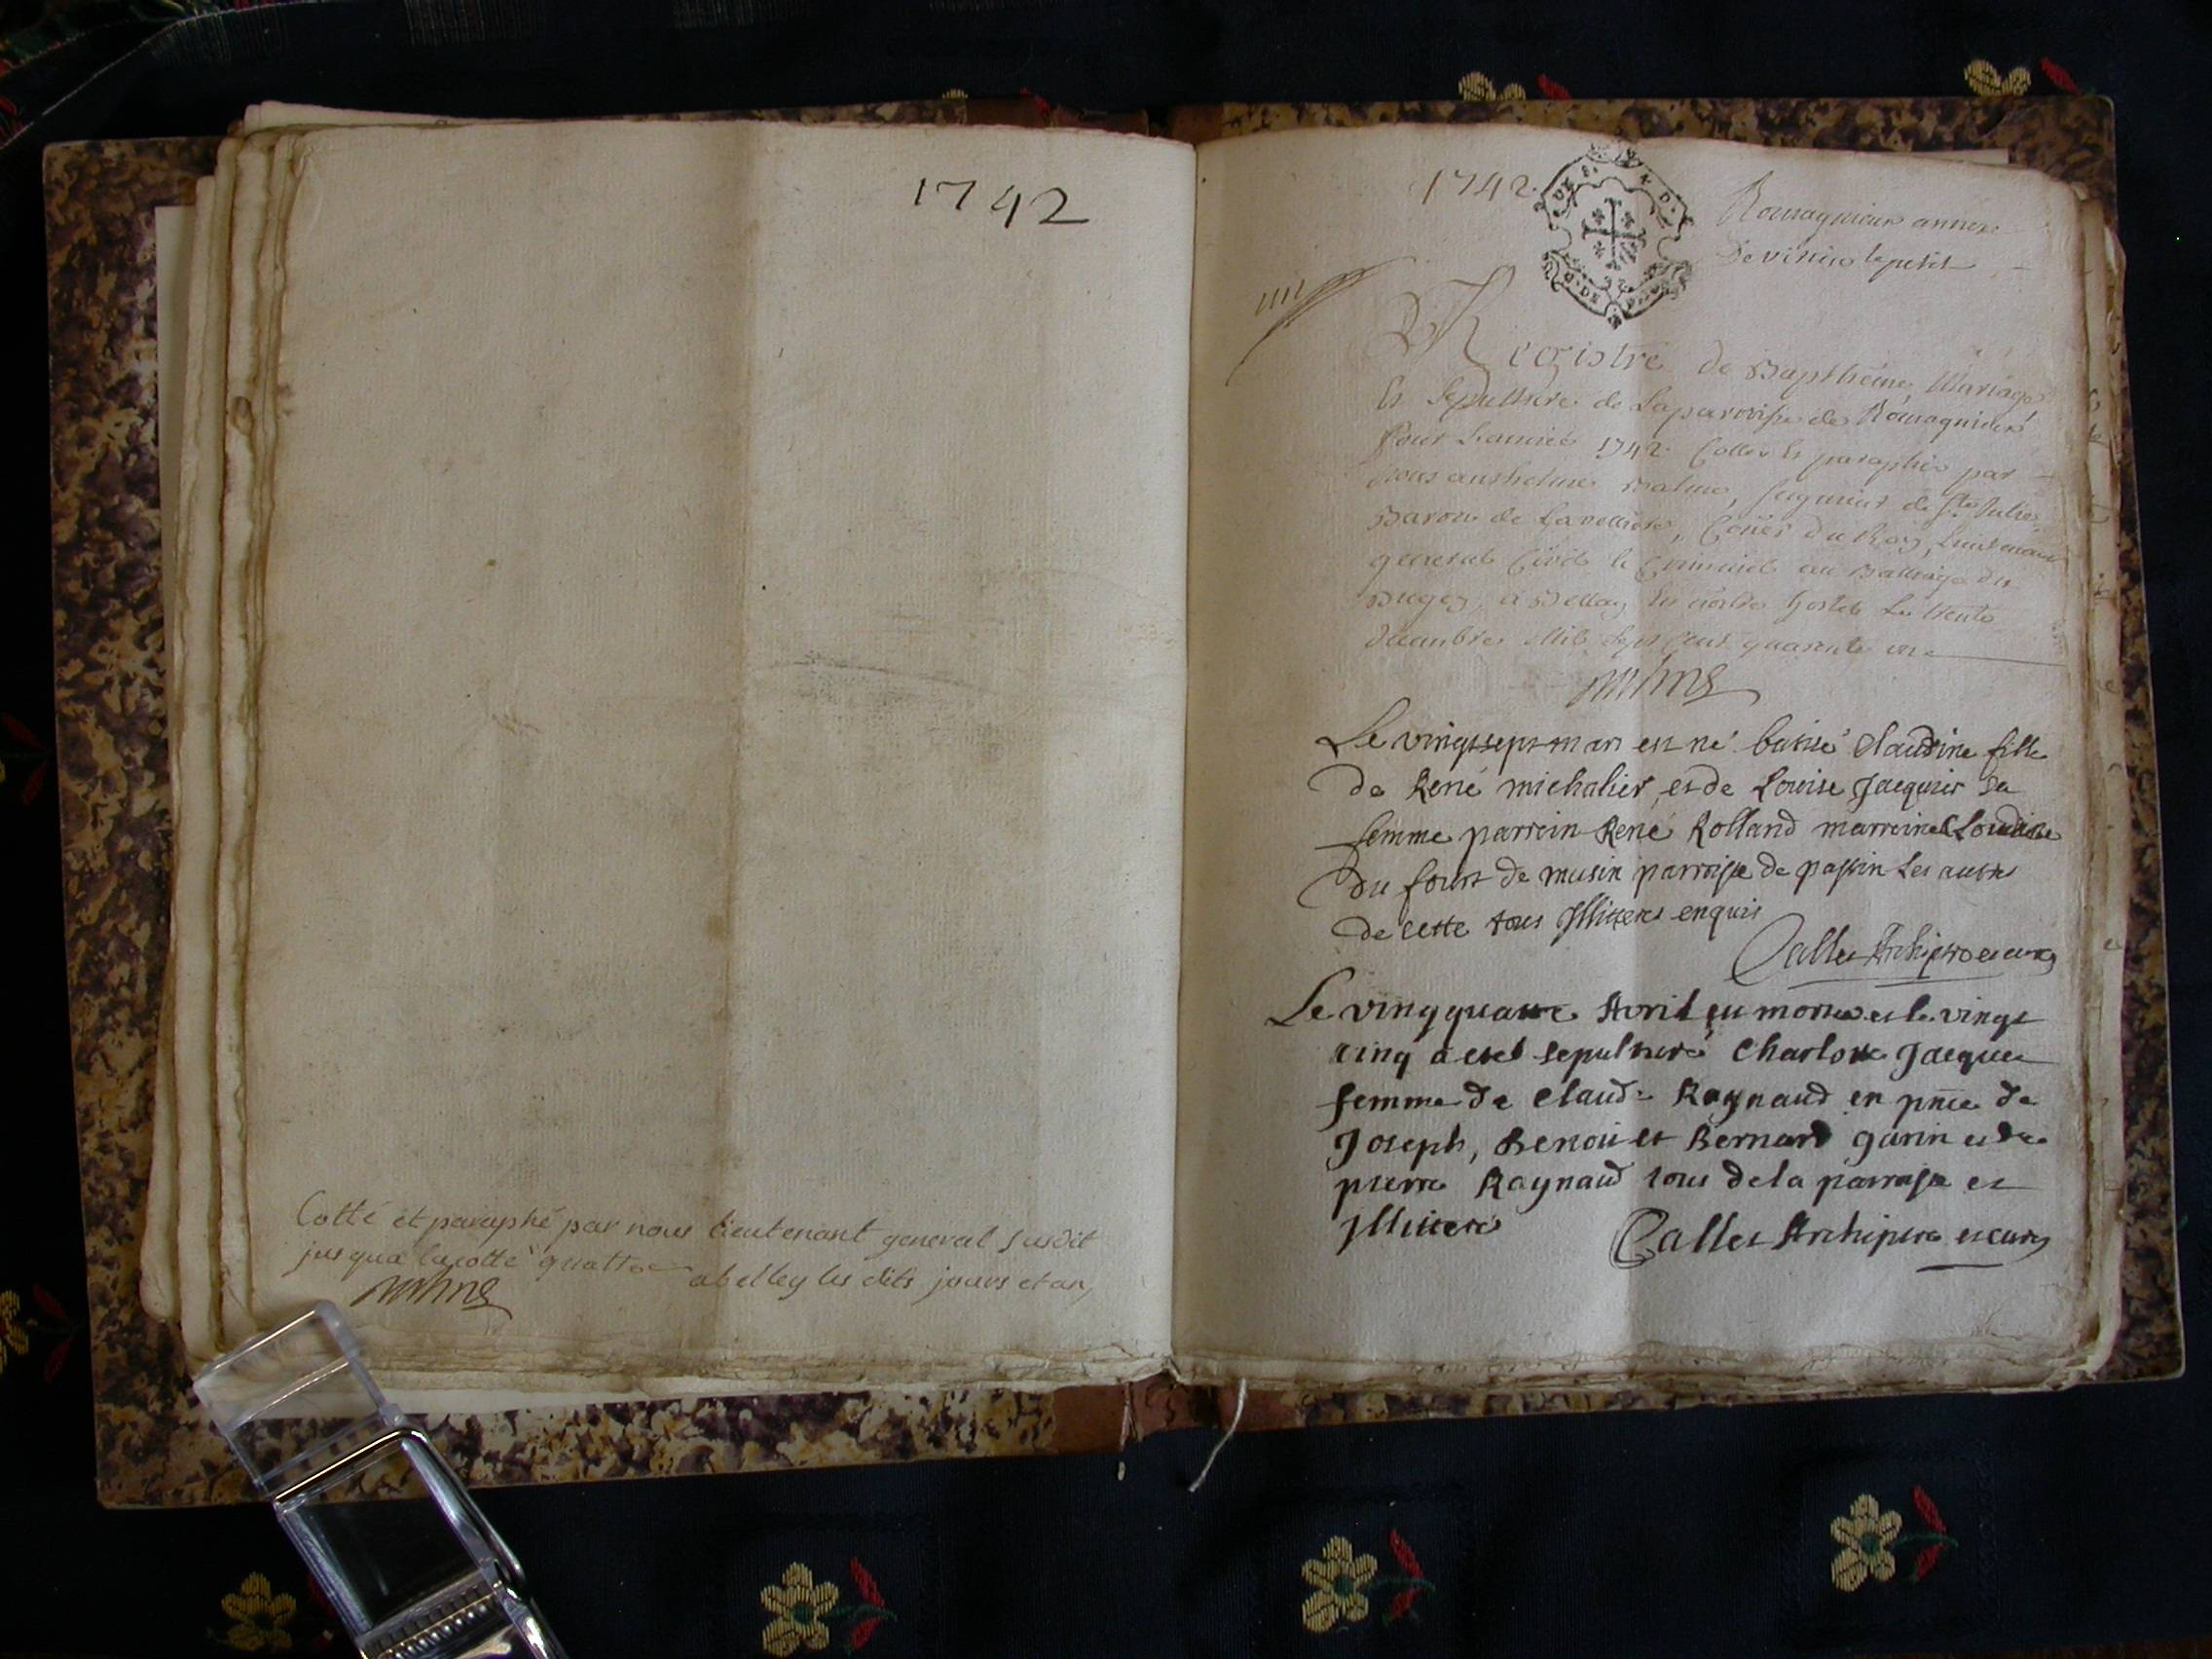 1742
Cotté et paraphé par nous lieutenant general susdit
jusqua la cotte quattre abelley les dits jours et an,
1742.
Romagnieux annexe
De virieu le petit
Registre de Bapthême, Mariage
Et Sepulture de La paroisse de Romagnieux
Pour L'année 1742. Cotté Et paraphé par
Nous anthelme Balme, seigneur de Ste Julie
Baron de La velliere, Coner du Roy, Lieutenant
general Civil Et Criminel au Balliage du
Bugey, a Belley En nostre hostel Le trente
decembre Mil Sept Cent quarente un
Le vingt sept mars est né batisé Claudine fille
de René michalier, et de Louise Jacquier sa
femme parrein René Rolland marreine
Du fourt de musin parroisse de passin Les autres
de cette tous Illitteres enquis
Calles Archiptre et curé
Le vingq quattre Avril est morte et le vingt
cinq a eté sepulturé Charlotte Jacquier
femme de Claude Raynaud en pnce de
Joseph, Benoit et Bernard garin et de
pierre Raynaud tous de la parroisse et
Illitteré
Calles Archiptre et curé